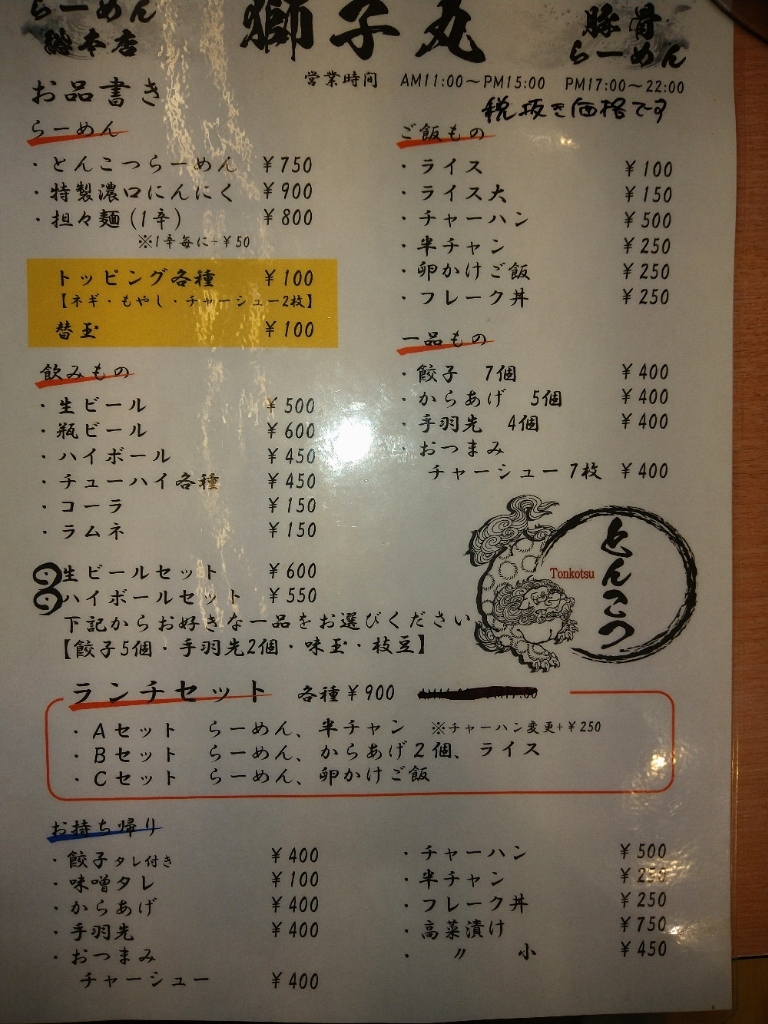 らーめん
総本店
獅子丸
豚骨
らーめん
営業時間 AM11:00～PM15:00 PM17:00～22:00
税抜き価格です
お品書き
らーめん
・とんこつらーめん ￥750
・特製濃口にんにく ￥900
・担々麺(1辛) ￥800
※1辛毎に+￥50
トッピング各種 ￥100
【ネギ・もやし・チャーシュー2枚】
替玉 ￥100
飲みもの
・生ビール ￥500
・瓶ビール ￥600
・ハイボール ￥450
・チューハイ各種 ￥450
・コーラ ￥150
・ラムネ ￥150
生ビールセット ￥600
ハイボールセット ￥550
下記からお好きな一品をお選びください
【餃子5個・手羽先2個・味玉・枝豆】
ご飯もの
・ライス ￥100
・ライス大 ￥150
・チャーハン ￥500
・半チャン ￥250
・卵かけご飯 ￥250
・フレーク丼 ￥250
一品もの
・餃子 7個 ￥400
・からあげ 5個 ￥400
・手羽先 4個 ￥400
・おつまみ
チャーシュー7枚 ￥400
とんこつ
Tonkotsu
ランチセット 各種￥900
・Aセット らーめん、半チャン ※チャーハン変更+￥250
・Bセット らーめん、からあげ2個、ライス
・Cセット らーめん、卵かけご飯
お持ち帰り
・餃子タレ付き ￥400
・味噌タレ ￥100
・からあげ ￥400
・手羽先 ￥400
・おつまみ
チャーシュー ￥400
・チャーハン ￥500
・半チャン ￥250
・フレーク丼 ￥250
・高菜漬け ￥750
・ 〃 小 ￥450